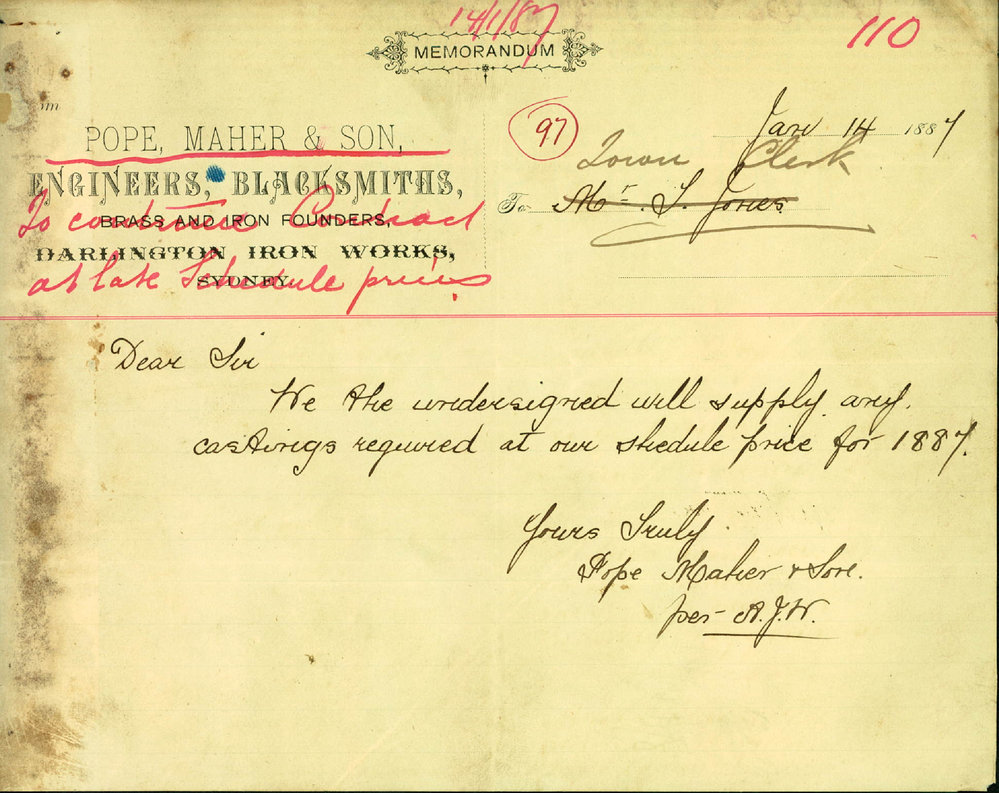 14/1/87
110
MEMORANDUM
POPE, MAHER & SON,
ENGINEERS, BLACKSMITHS,
BRASS AND IRON FOUNDERS,
DARLINGTON IRON WORKS,
SYDNEY
To continue Contract
at late Schedule prices
97
Jany 14 1887
Town Clerk
To Mr. S. Jones
Dear Sir
We the undersigned will supply any
castings required at our shedule price for 1887.
Yours Truly
Pope Maher & Son.
per A.J.W.